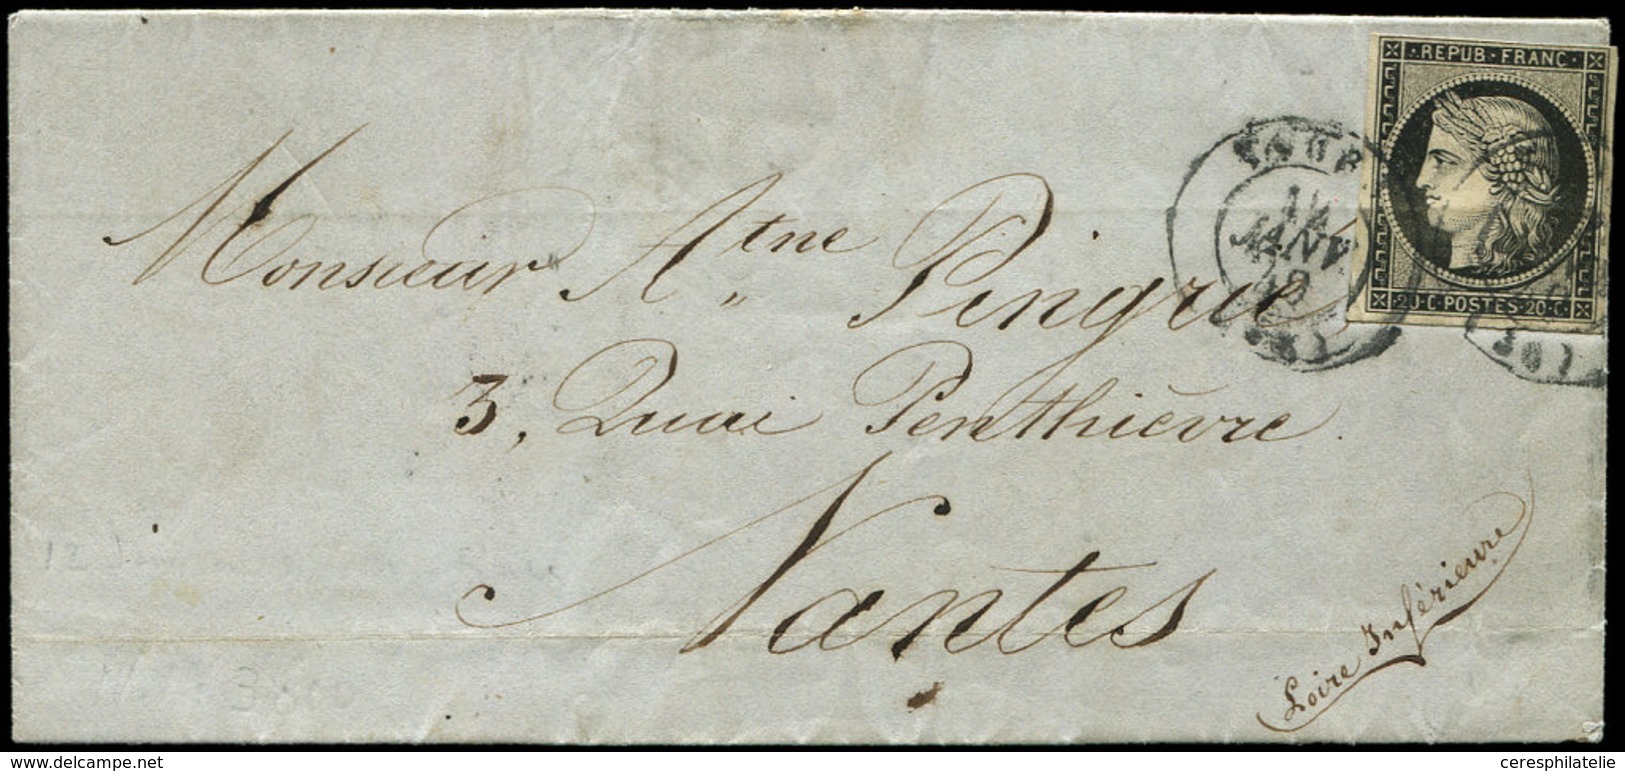 REPUB·FRANC·
TOUR
14
JANV
49
(36)
20·C·POSTES·20·C·
(36)
Monsieur Atne Pingrié
3, Quai Penthièvre.
Nantes
Loire Inférieure
delcampe.net
ceresphilatelie